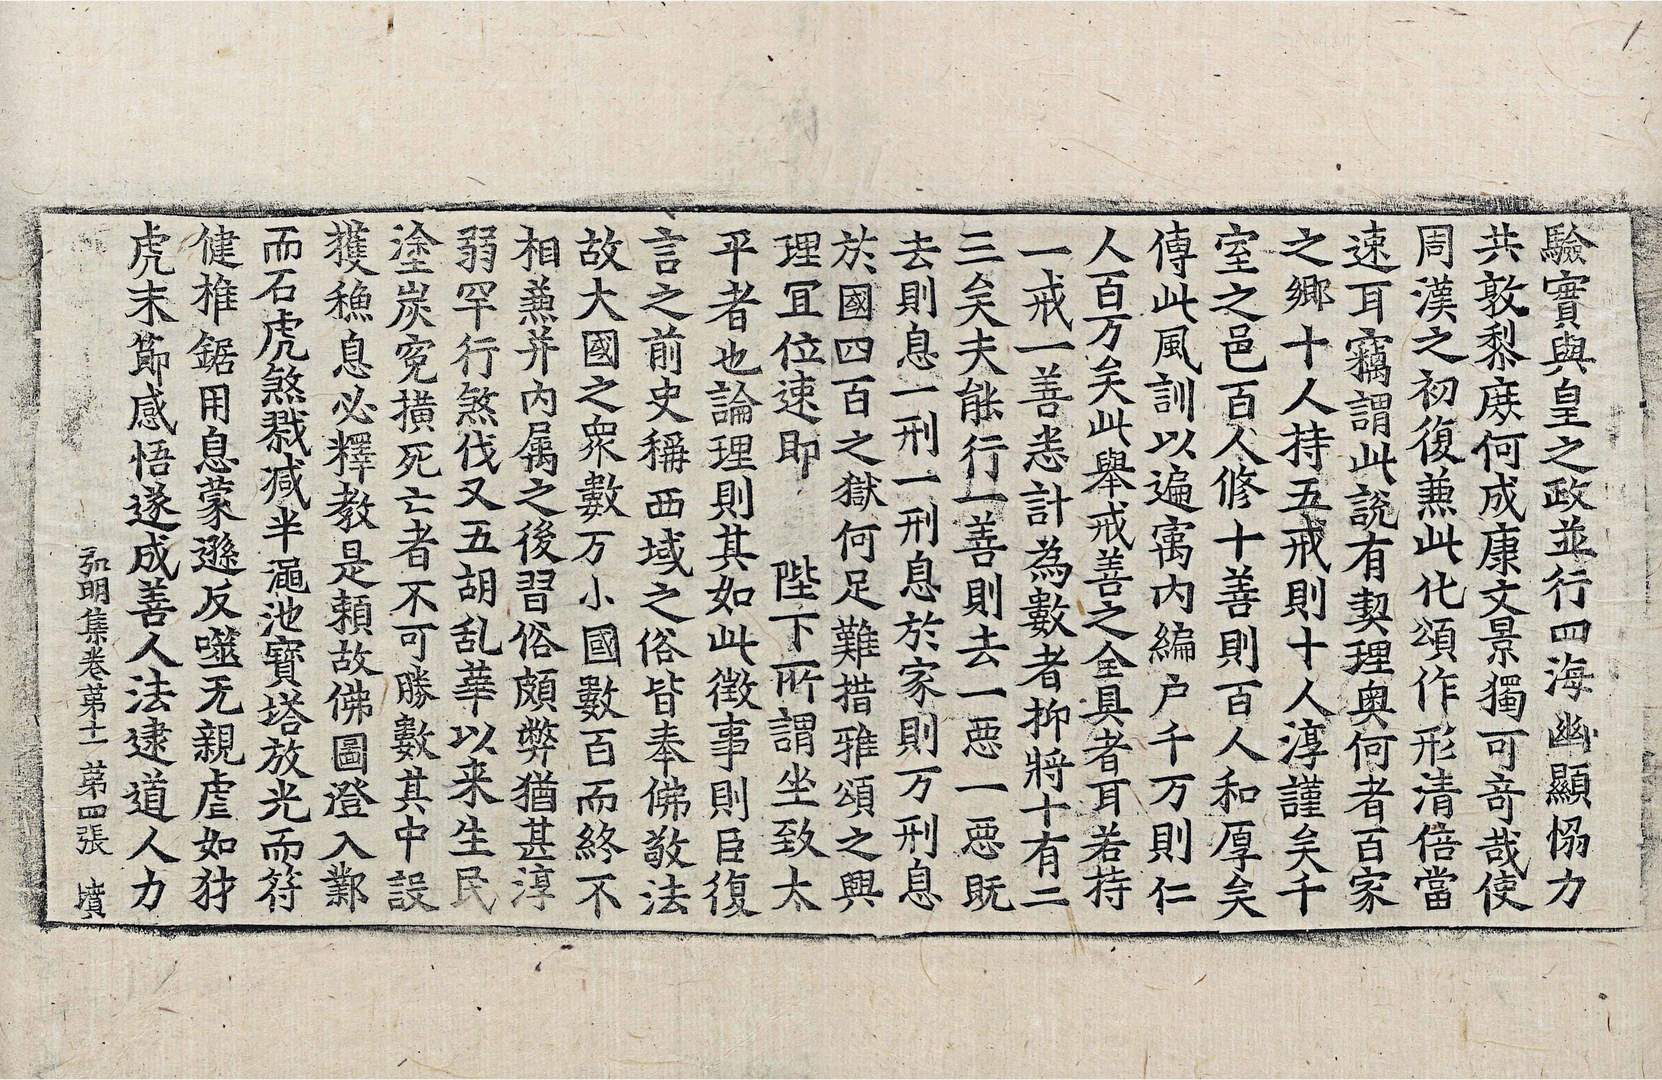 驗實與皇之政並行四海幽顯恊力
共敦黎庶何成康文景獨可竒哉使
周漢之初復兼此化頌作形清倍當
速耳竊謂此說有契理奥何者百家
之鄉十人持五戒則十人淳謹矣千
室之邑百人修十善則百人和厚矣
傳此風訓以遍㝢内編户千万則仁
人百万矣此舉戒善之全具者耳若持
一戒一善悉計為數者抑將十有二
三矣夫能行一善則去一惡一惡既
去則息一刑一刑息於家則万刑息
於國四百之獄何足難措雅頌之興
理冝位速即　陛下所謂坐致太
平者也論理則其如此徵事則臣復
言之前史稱西域之俗皆奉佛敬法
故大國之衆數万小國數百而終不
相兼并内屬之後習俗頗弊猶甚淳
弱罕行煞伐又五胡乱華以来生民
塗炭寃撗死亡者不可勝數其中設
獲穌息必釋教是頼故佛圖澄入鄴
而石虎煞戮减半澠池寳塔放光而苻
健椎鋸用息蒙遜反噬无親虐如犲
虎末節感悟遂成善人法逮道人力
弘明集卷苐十一　苐四張　墳